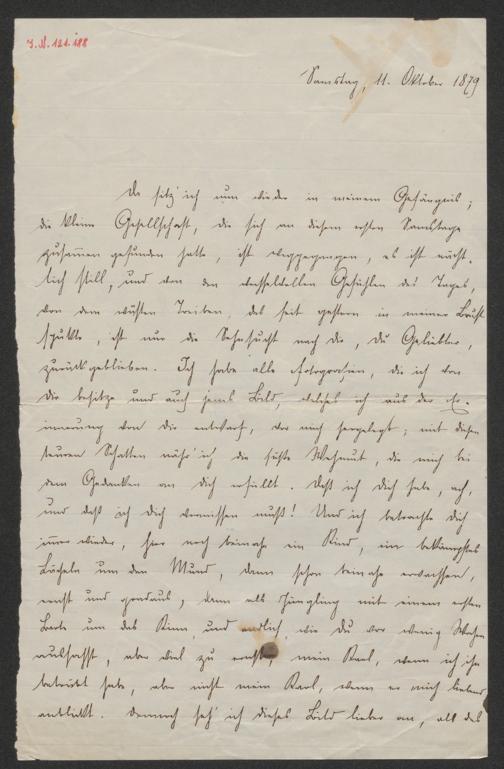 J.N. 121.188
Samstag, 11. Oktober 1879
Da sitz' ich nun wieder in meinem Gefängnis;
die kleine Gesellschaft, die sich an diesem ersten Samstage
zusammen gefunden hatte, ist weggegangen, es ist nächt-
lich still, und von den wechselvollen Gefühlen des Tages,
von dem wüsten Treiben, das seit gestern in meiner Brust
spukte, ist nur die Sehnsucht nach dir, du Geliebter,
zurückgeblieben. Ich habe alle Fotografien, die ich von
Dir besitze und auch jenes Bild, welches ich aus der Er-
innerung von dir entwarf, vor mich hergelegt; mit diesen
teuren Schatten nähr' ich die süße Wehmut, die mich bei
dem Gedanken an dich erfüllt. Daß ich dich habe, ach,
und daß ich dich vermissen muß! Und ich betrachte dich
immer wieder, hier noch beinahe ein Kind, ein bekämpftes
Lächeln um den Mund, dann schon beinahe erwachsen,
ernst und geradaus, dann als Jüngling mit einem ersten
Barte um das Kinn, und endlich, wie du vor wenig Wochen
aussahst, aber viel zu ernst, mein Karl, wenn ich ihn
betrübt habe, aber nicht mein Karl, wenn er mich liebend
anblickt. Dennoch seh' ich dieses Bild lieber an, als das